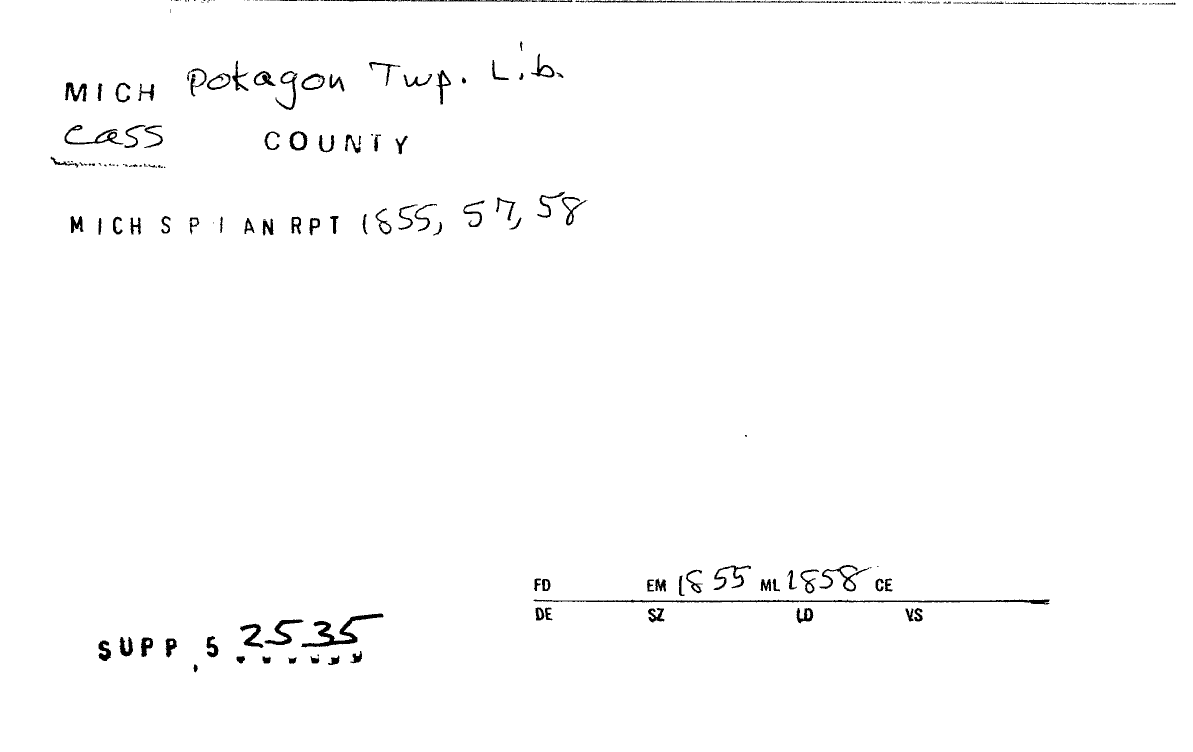 MICH Pokagon Twp. Lib.
Cass COUNTY
MICH S P I AN RPT 1855, 57, 58
FD EM 1855 ML 1858 CE
DE SZ LD VS
SUPP, 5 2535